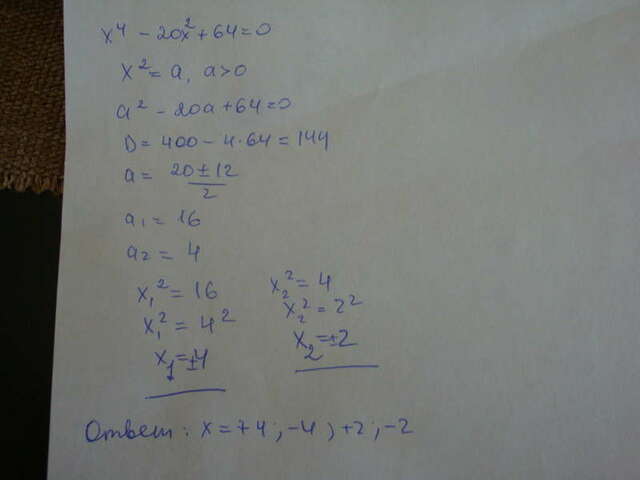 x⁴ - 20x² + 64 = 0
x² = a, a > 0
a² - 20a + 64 = 0
D = 400 - 4·64 = 144
a = (20 ± 12)/2
a₁ = 16
a₂ = 4
x₁² = 16    x₂² = 4
x₁² = 4²    x₂² = 2²
x₁ = ±4    x₂ = ±2
Ответ: x = +4; -4; +2; -2